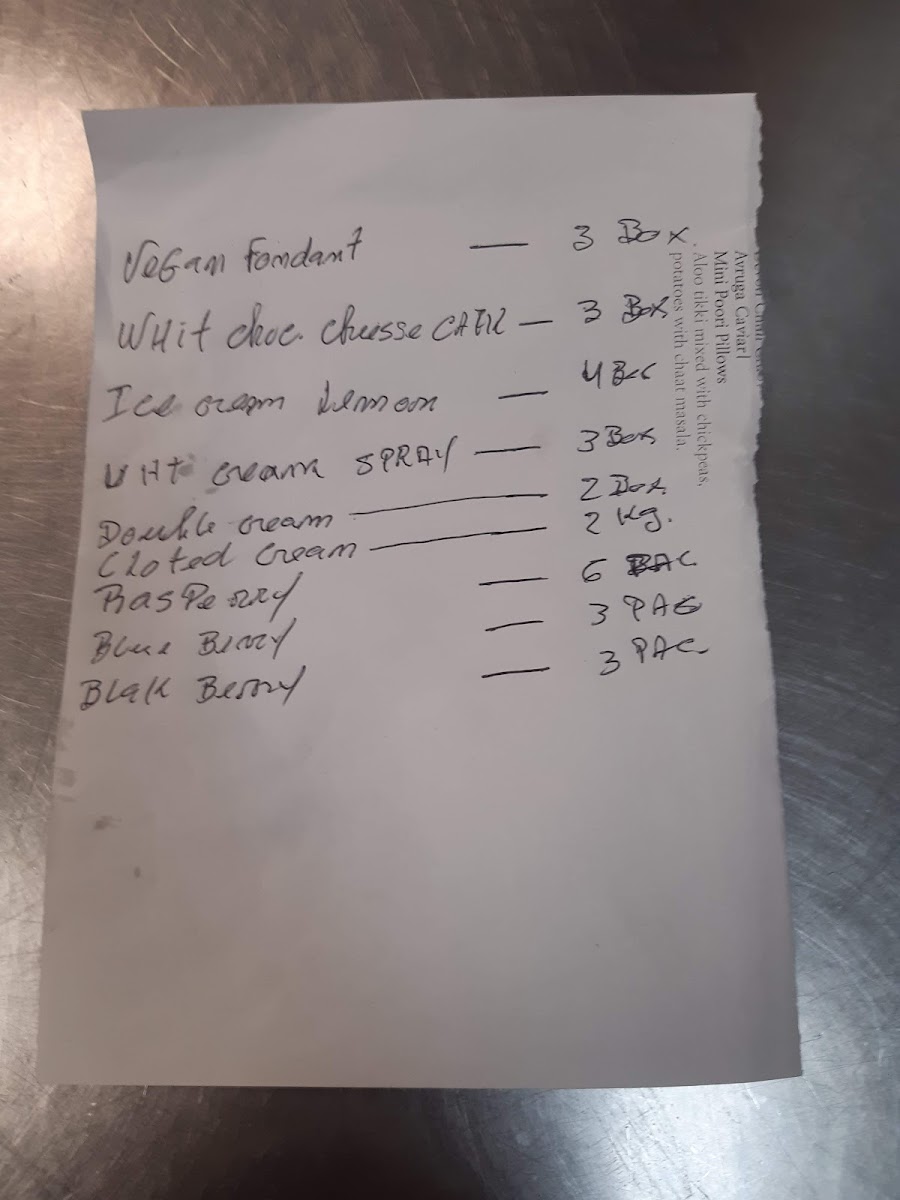 Vegan fondant — 3 Box
WHit choc. cheesse CAEK — 3 Box
Ice cream Lemon — 4 Box
UHt cream SPRAY — 3 Box
Double cream — 2 Box
Cloted cream — 2 Kg.
RasPerry — 6 PAC
Blue Berry — 3 PAC
Blak Berry — 3 PAC
Avruga Caviar]
Mini Poori Pillows
Aloo tikki mixed with chickpeas,
potatoes with chaat masala.